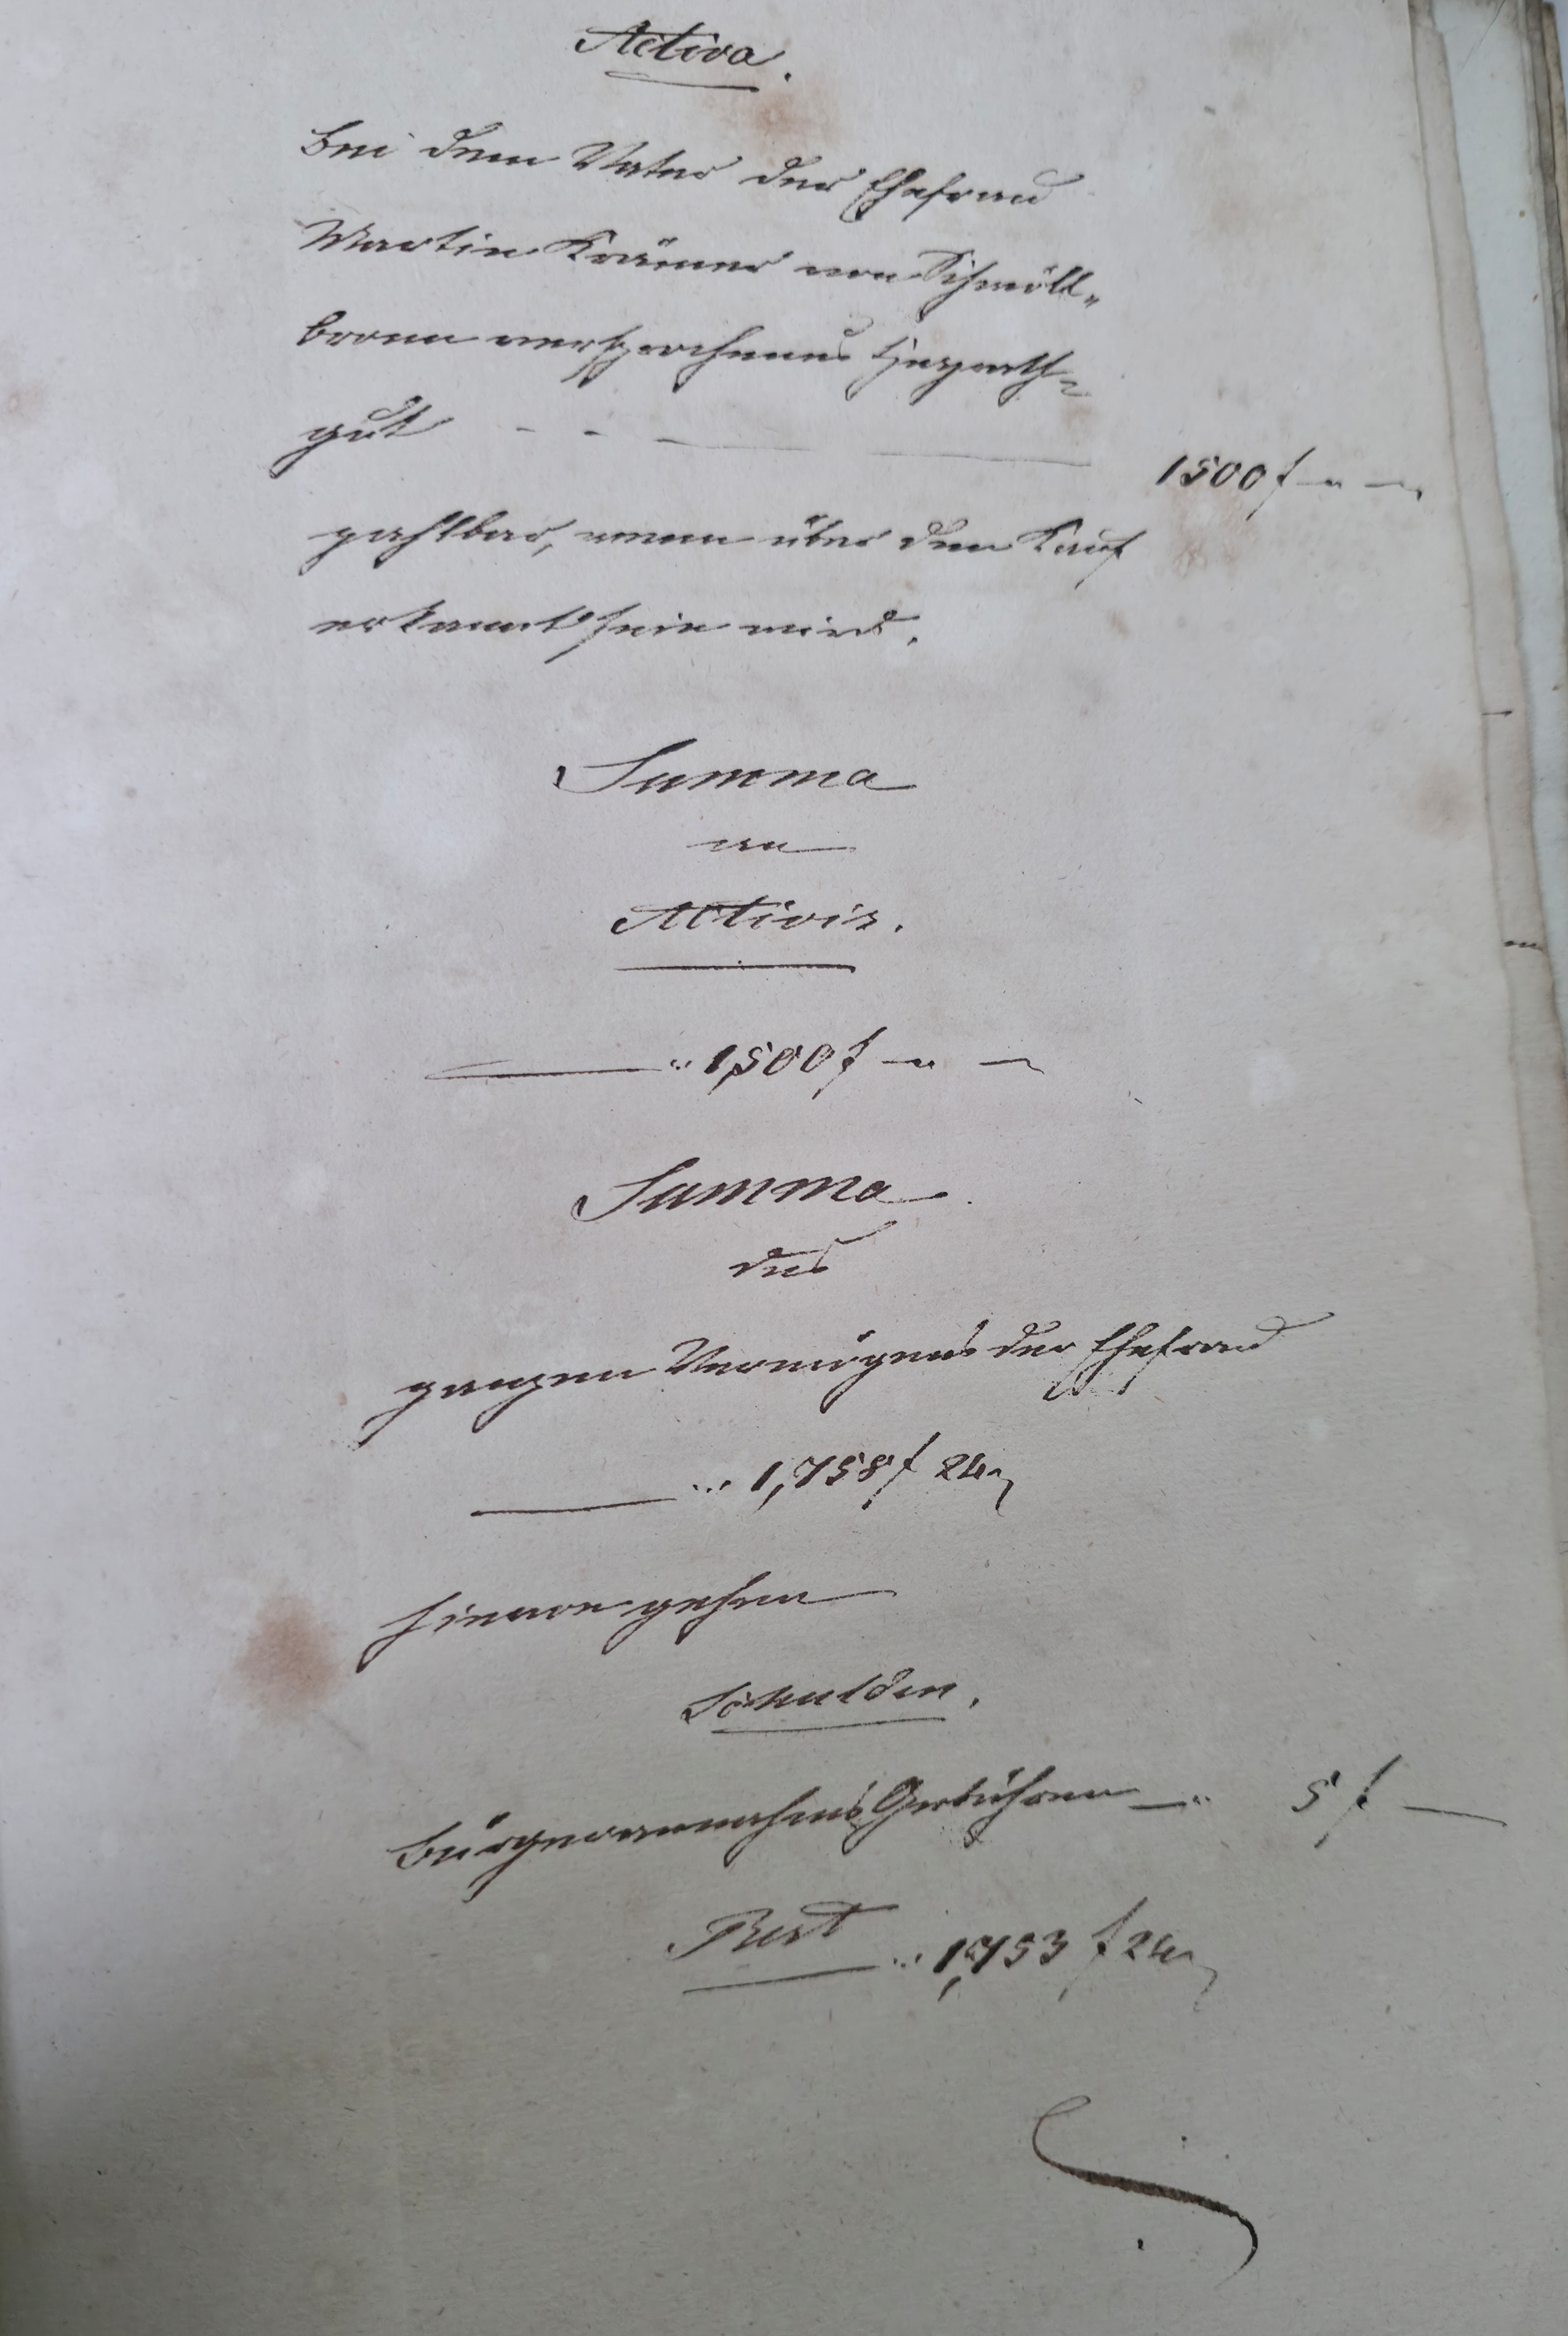 Activa.
Bei dem Vater der Ehefrau
Martin Krämer von Schmöll„
bronn versprochenes Heyrath=
gut - - — 1500 f — " —
zahlbar, wenn über den Kauf
erkannt sein wird.
Summa
an
Activis.
— .. 1,500 f — " —
Summa
des
ganzen Vermögens der Ehefrau
— ... 1,758 f 24
hievon gehen
Schulden.
Bürgerannahms Gebühren — .. 5 f —
Rest ... 1,753 f 24